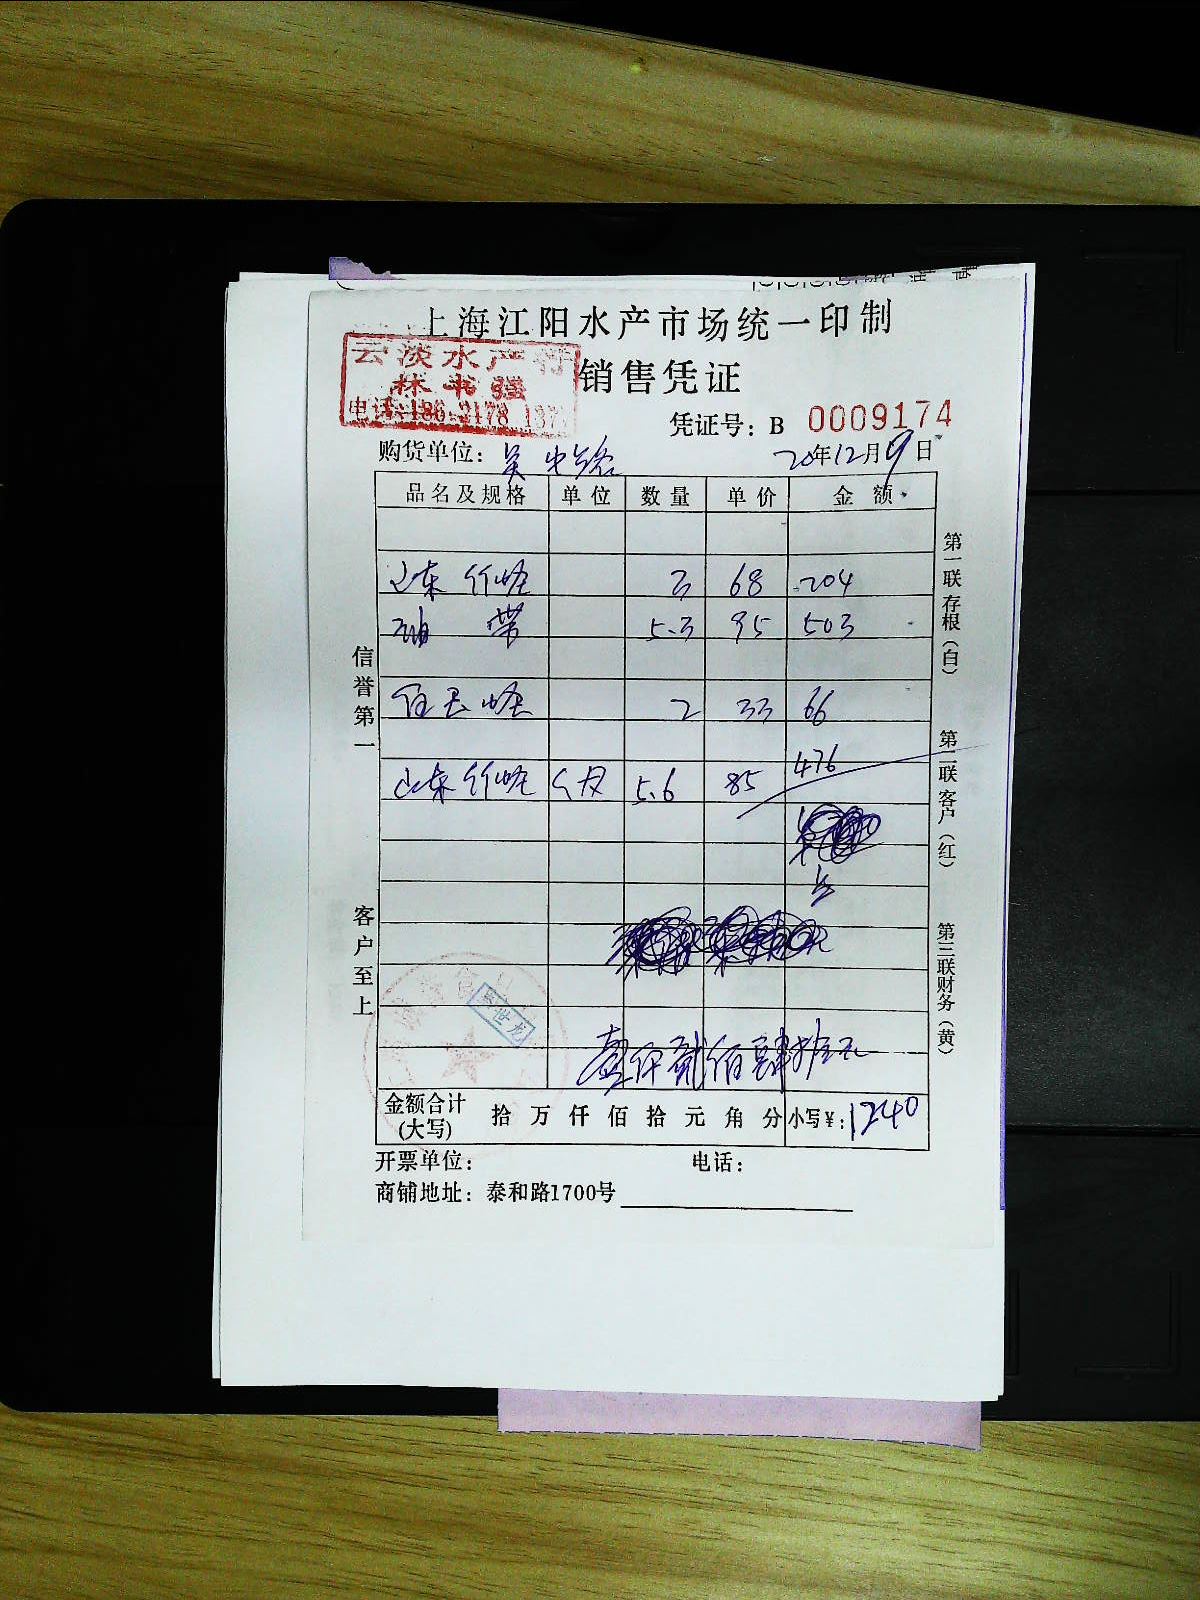 上海江阳水产市场统一印制
云淡水产行
林书强
销售凭证
凭证号: B 0009174
购货单位: 吴中路
20年12月9日
品名及规格 单位 数量 单价 金额
山东竹蛏 3 68 204
油带 5.3 95 503
2 33 66
山东竹蛏 5.6 85 476
壹仟贰佰肆拾元
金额合计 (大写) 拾 万 仟 佰 拾 元 角 分 小写¥: 1240
开票单位: 电话:
商铺地址: 泰和路1700号
信誉第一
客户至上
第一联存根(白)
第二联客户(红)
第三联财务(黄)